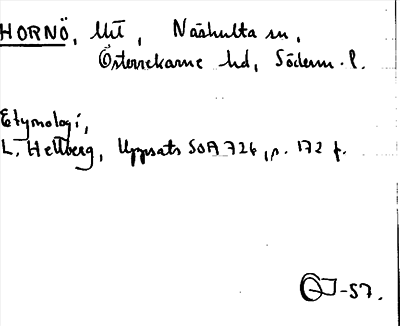 HORNÖ, Utt, Näshulta sn,
Österrekarne hd, Söderm. l.
Etymologi,
L. Hellberg, Uppsats SOA 726, p. 172 f.
-57.